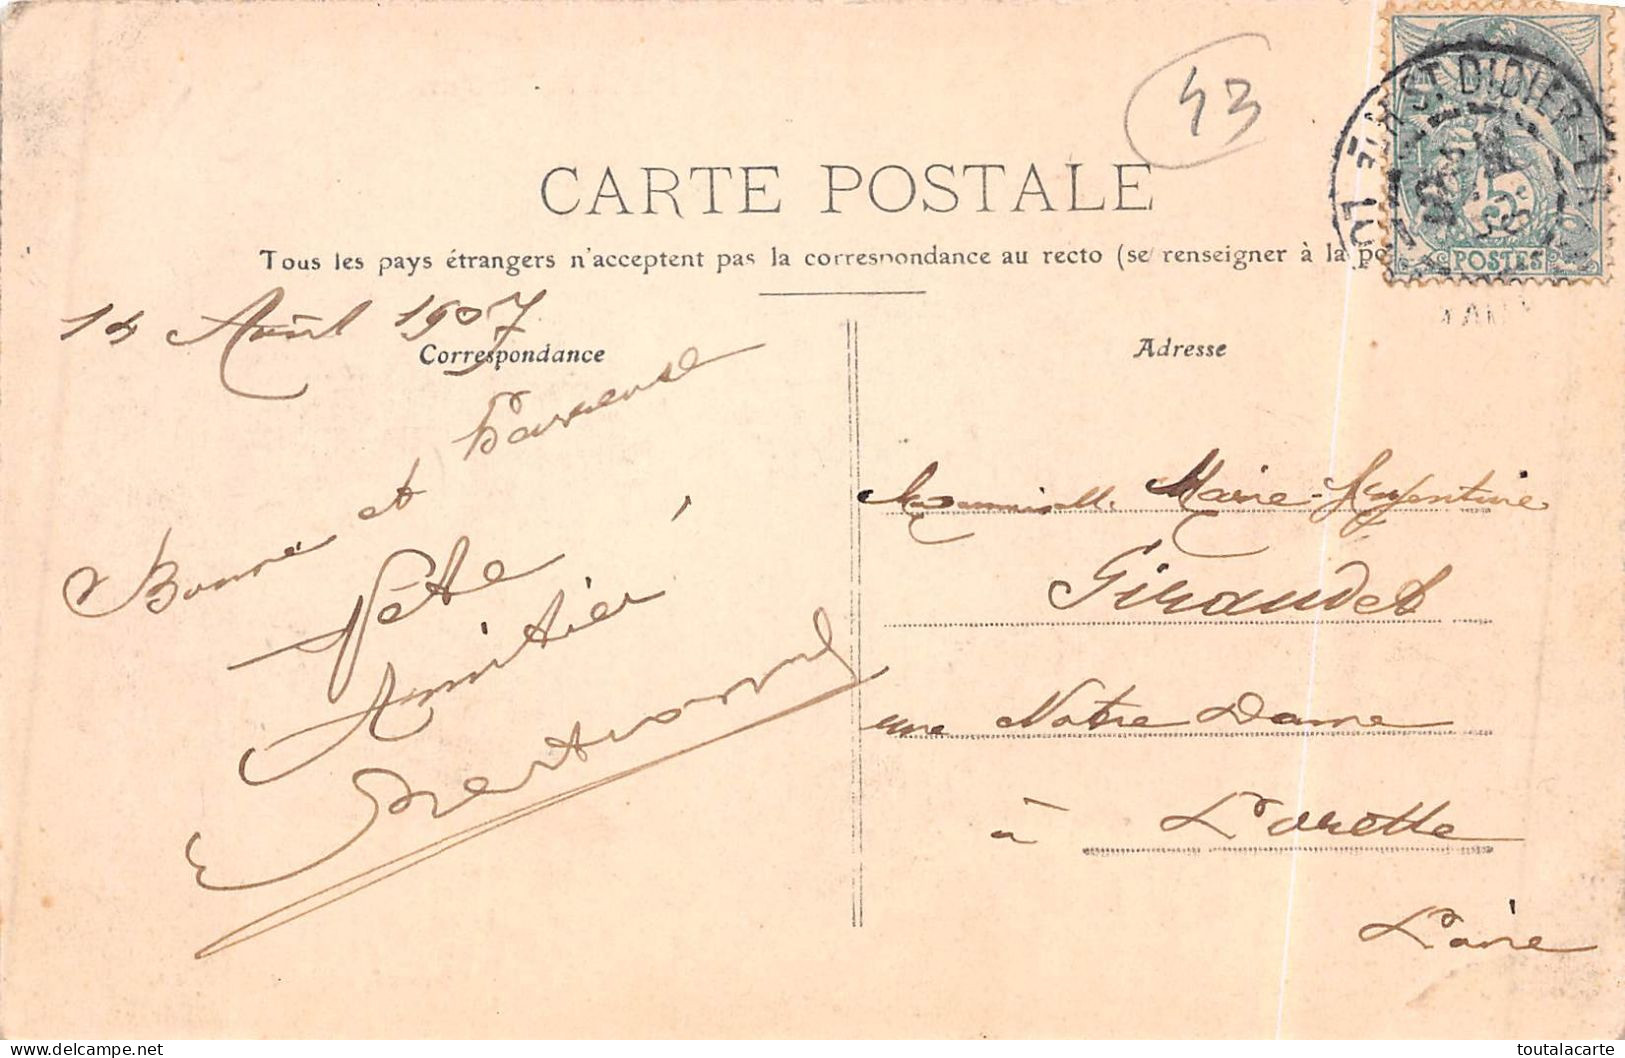 43
CARTE POSTALE
Tous les pays étrangers n'acceptent pas la correspondance au recto (se renseigner à la po
14 Août 1907
Correspondance
Adresse
Bonne et heureuse
Fête
Amitiés
Mademoiselle Marie-Argentine
Giraudet
rue Notre Dame
à Lorette
Loire
ST DIDIER
5
POSTES
delcampe.net
toutalacarte